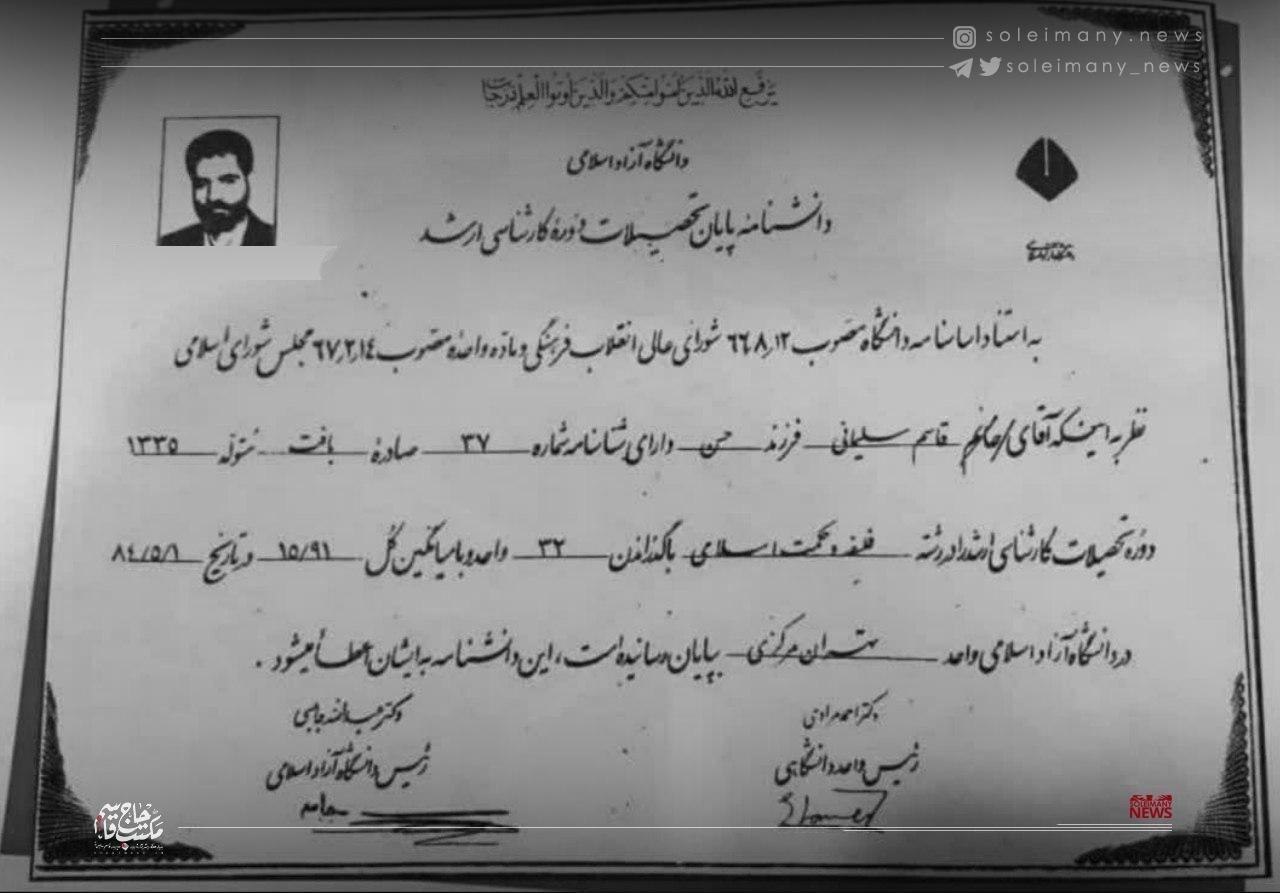 soleimany.news
soleimany_news
يَرْفَعِ اللهُ الَّذينَ آمَنُوا مِنْكُمْ وَالَّذينَ أُوتُوا الْعِلْمَ دَرَجَات
دانشگاه آزاد اسلامی
دانشنامه پایان تحصیلات دوره کارشناسی ارشد
به استناد اساسنامه دانشگاه مصوب ۶۶٫۸٫۱۲ شورای عالی انقلاب فرهنگی و ماده واحدهٔ مصوب ۶۷٫۲٫۱۴ مجلس شورای اسلامی
نظر به اینکه آقای/خانم قاسم سلیمانی فرزند حسن دارای شناسنامه شماره ۳۷ صادرهٔ بافت متولد ۱۳۳۵
دوره تحصیلات کارشناسی ارشد را در رشته فلسفه و حکمت اسلامی با گذراندن ۳۲ واحد و با میانگین کل ۱۵/۹۱ در تاریخ ۸۴/۵/۱
در دانشگاه آزاد اسلامی واحد تهران مرکزی بپایان رسانیده است، این دانشنامه به ایشان اعطا میشود.
دکتر احمد مرادی
رئیس واحد دانشگاهی
دکتر عبدالله جاسبی
رئیس دانشگاه آزاد اسلامی
مکتب حاج قاسم
SOLEIMANY
NEWS